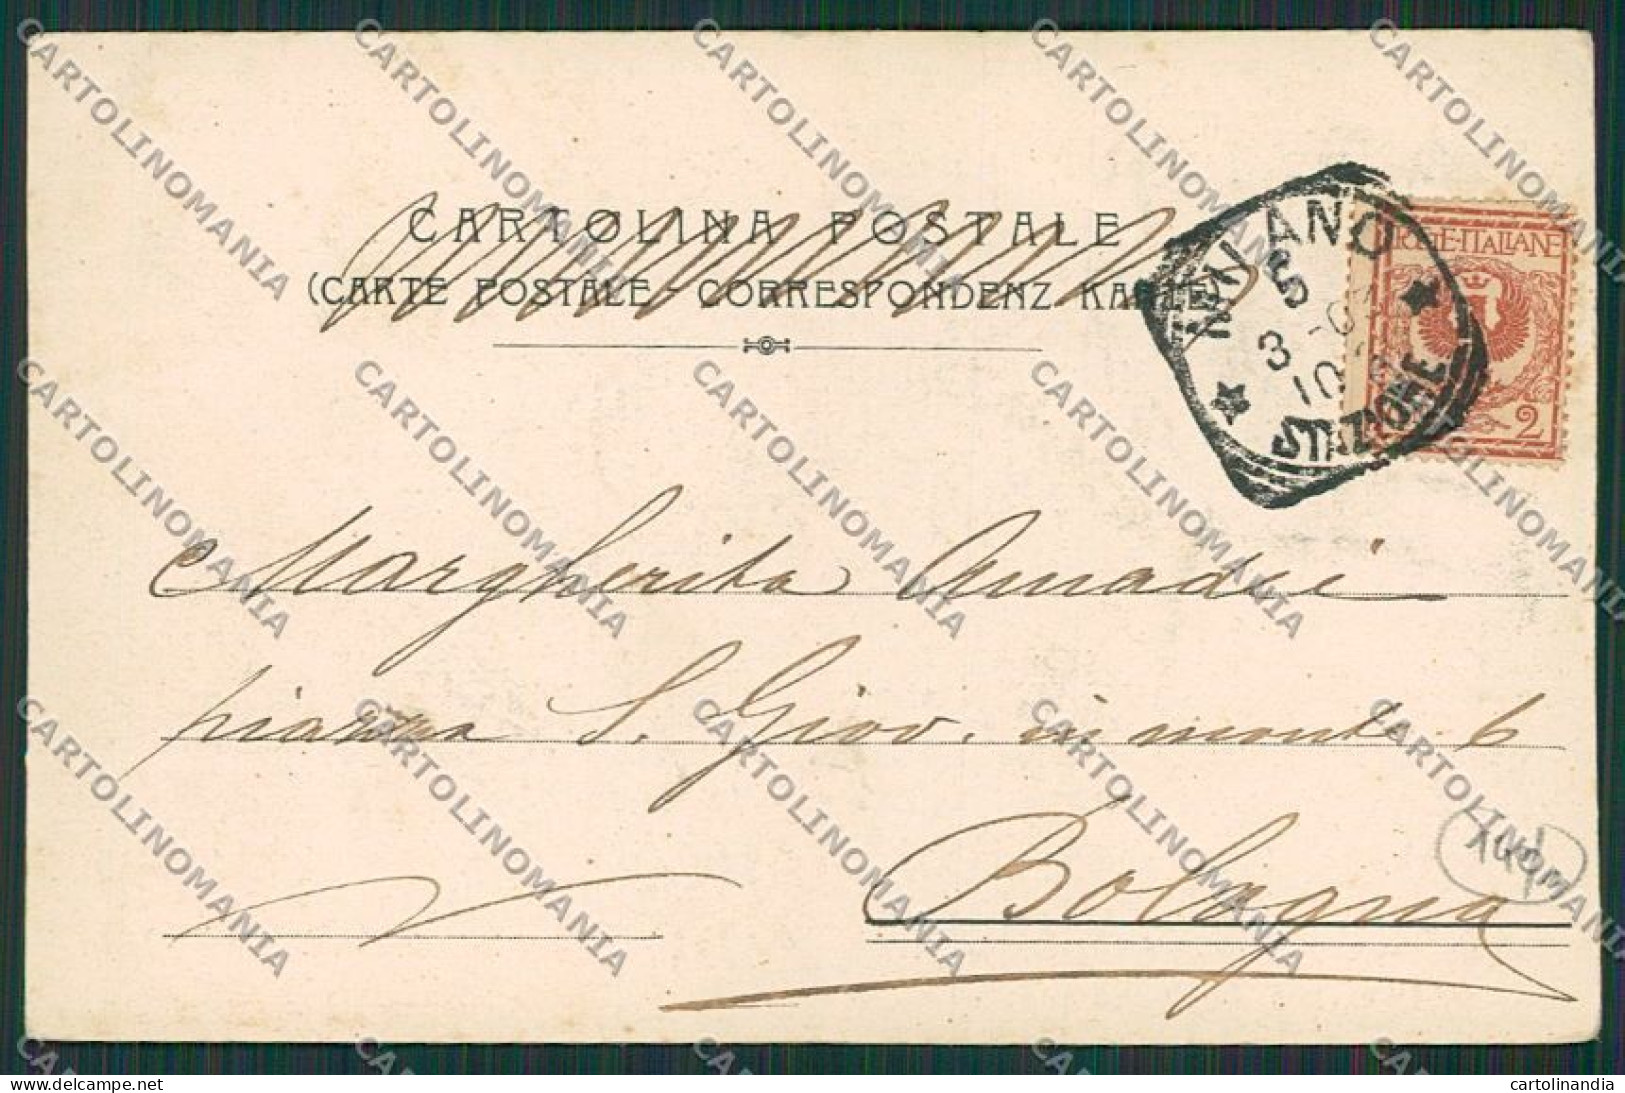 CARTOLINA POSTALE
(CARTE POSTALE - CORRESPONDENZ KARTE)
MILANO
STAZIONE
POSTE·ITALIANE
2
Margherita Amadei
piazza S. Giov. in monte 6
Bologna
CARTOLINOMANIA
cartolinandia